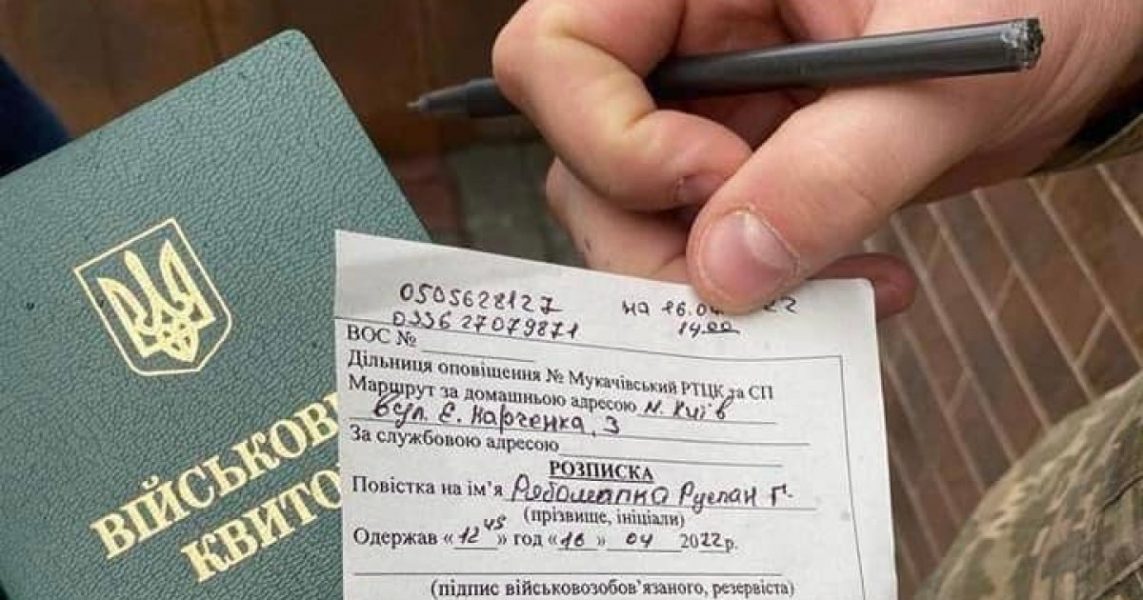 ВІЙСЬКОВ
КВИТО
0505628127
на 16.0
14.00
ВОС №
Дільниця оповіщення № Мукачівський РТЦК та СП
Маршрут за домашньою адресою м. Київ
вул. Є. Харченка, 3
За службовою адресою
РОЗПИСКА
Повістка на ім'я Руслан Г.
(прізвище, ініціали)
Одержав «12 45» год «16» 04 2022 р.
(підпис військовозобов'язаного, резервіста)